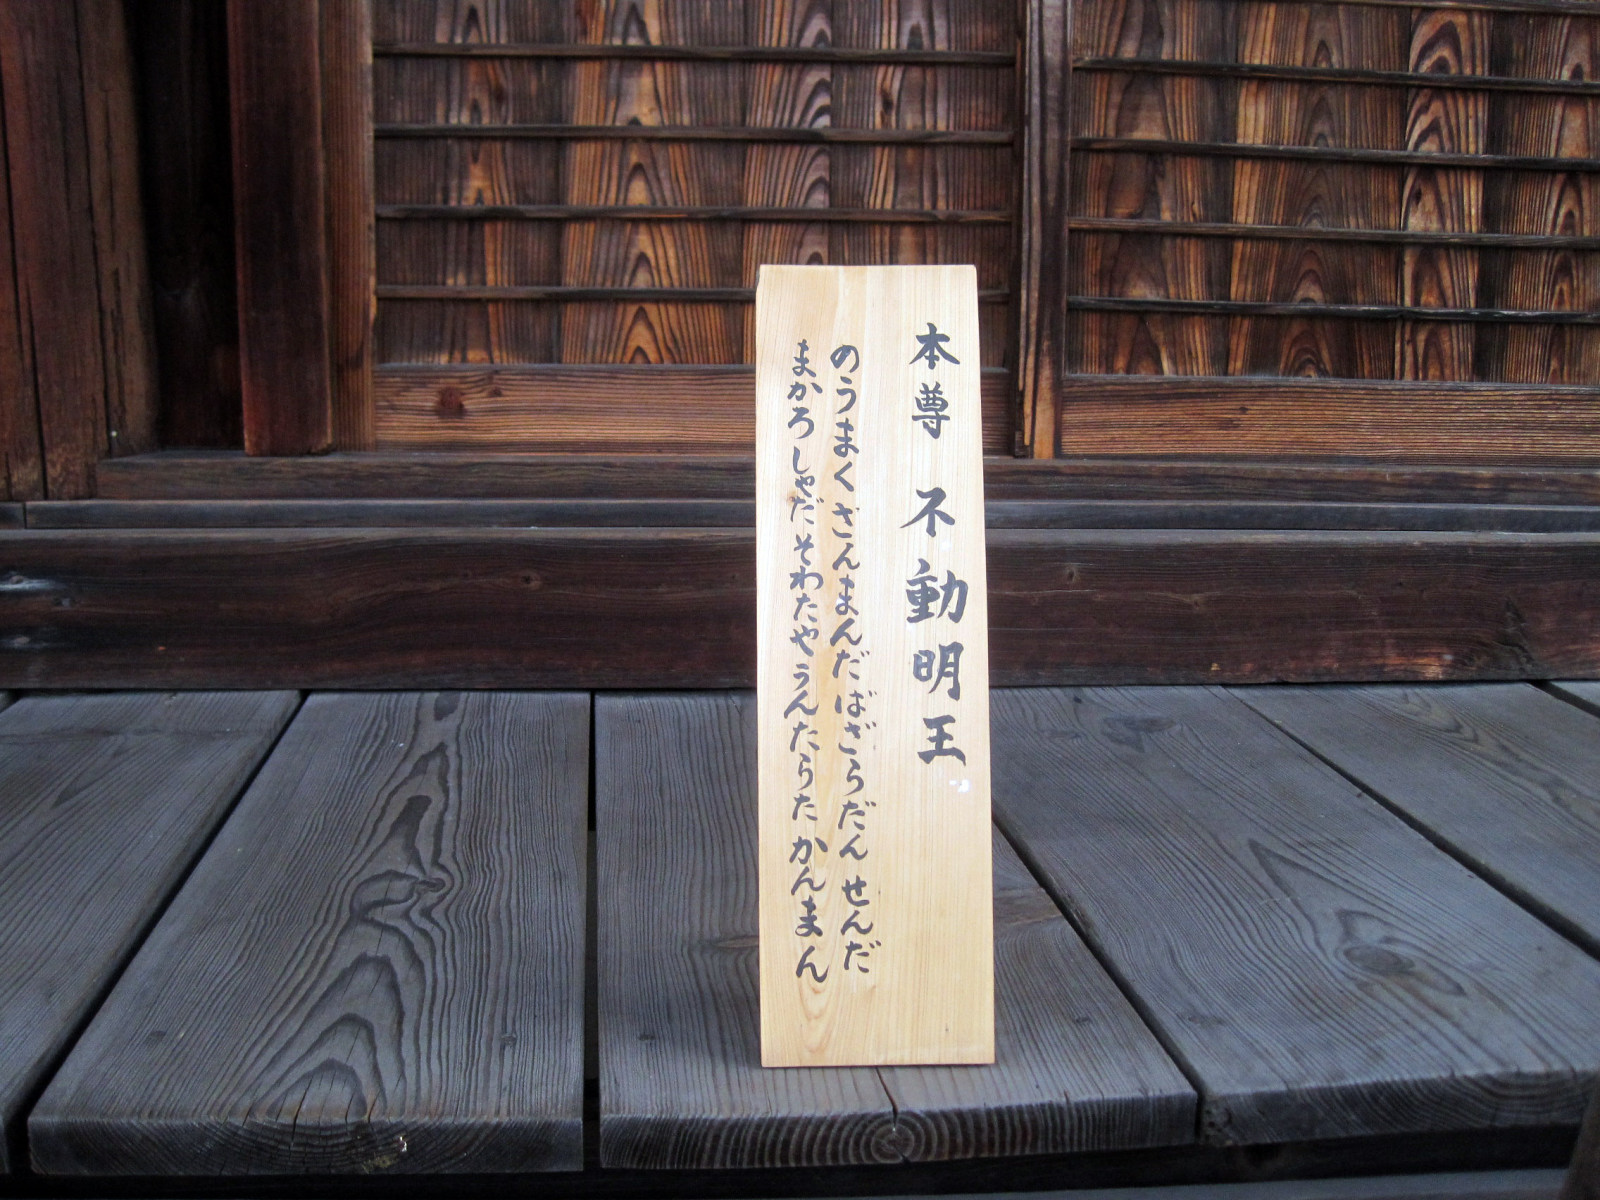 本尊 不動明王
のうまくざんまんだばざらだん せんだ
まかろしゃだ そわたやうんたらたかんまん